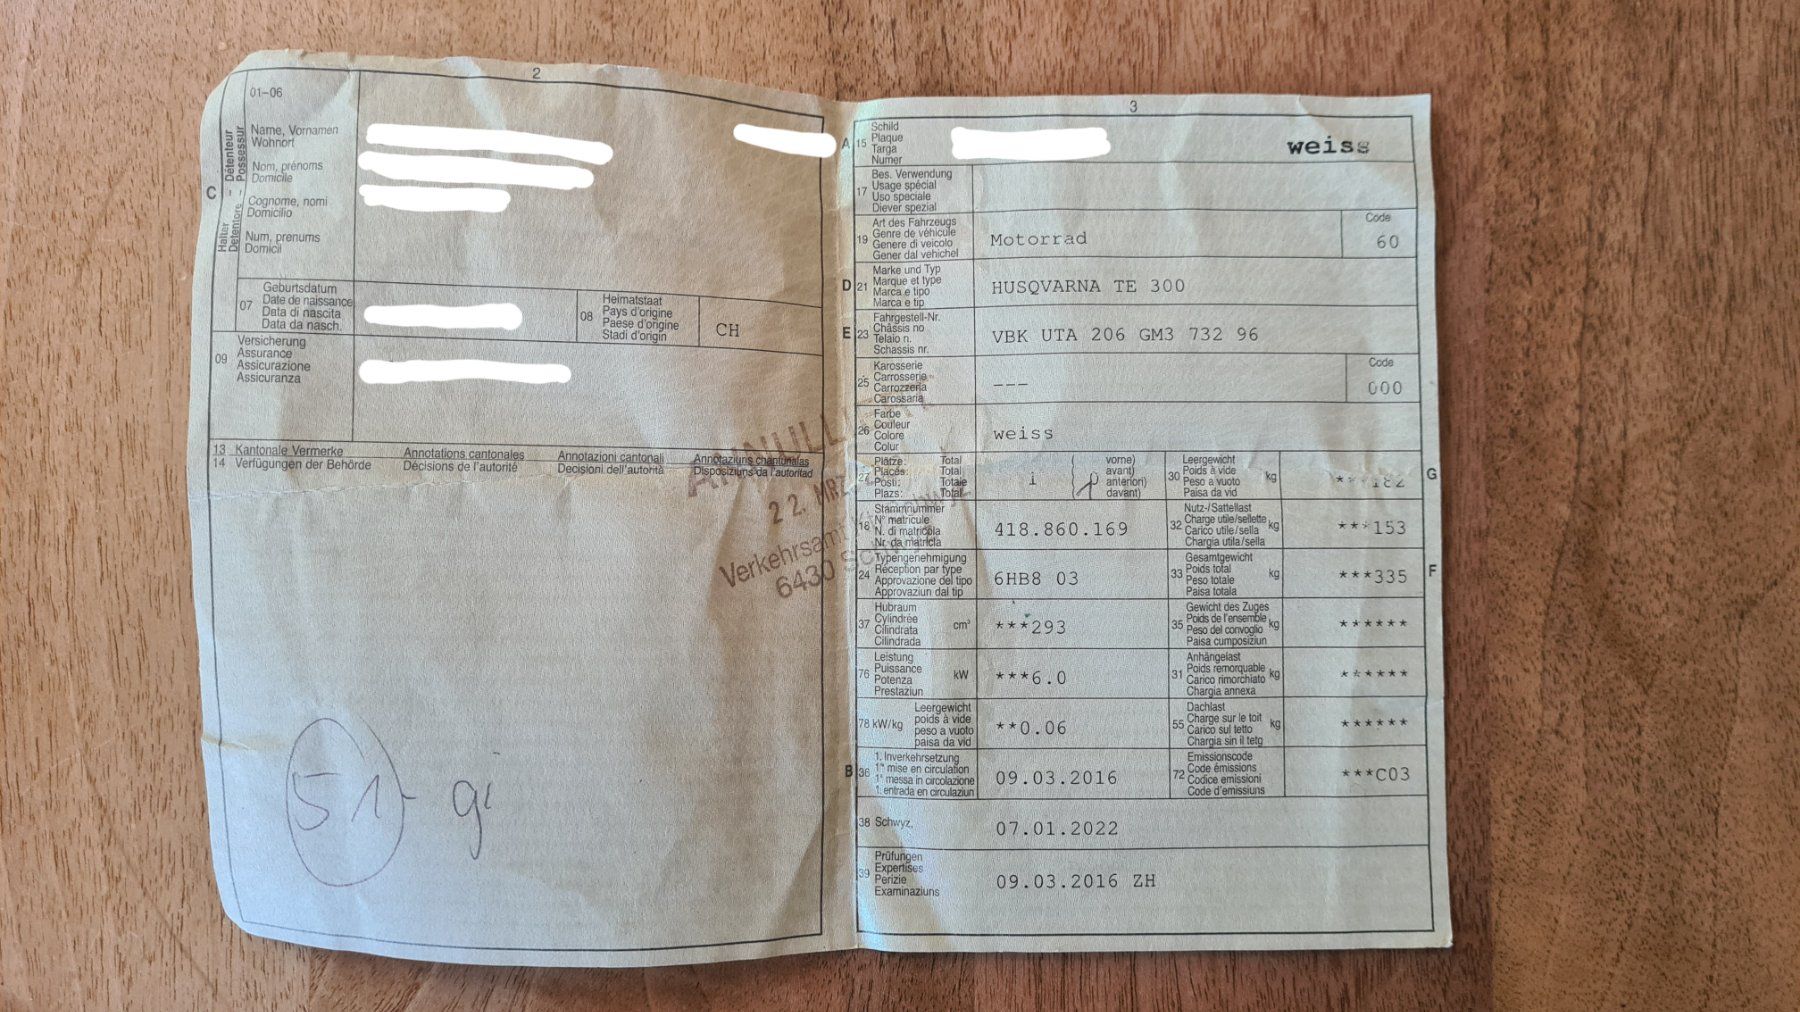 2
01-06
C
Halter - Détenteur
Detentore - Possessur
Name, Vornamen
Wohnort
Nom, prénoms
Domicile
Cognome, nomi
Domicilio
Num, prenums
Domicil
07
Geburtsdatum
Date de naissance
Data di nascita
Data da nasch.
08
Heimatstaat
Pays d'origine
Paese d'origine
Stadi d'origin
CH
09
Versicherung
Assurance
Assicurazione
Assicuranza
13 Kantonale Vermerke Annotations cantonales Annotazioni cantonali Annotaziuns chantunalas
14 Verfügungen der Behörde Décisions de l'autorité Decisioni dell'autorità Disposiziuns da l'autoritad
22. MRZ.
Verkehrsamt
6430
51 - gi
3
A 15
Schild
Plaque
Targa
Numer
weiss
17
Bes. Verwendung
Usage spécial
Uso speciale
Diever spezial
19
Art des Fahrzeugs
Genre de véhicule
Genere di veicolo
Gener dal vehichel
Motorrad
Code
60
D 21
Marke und Typ
Marque et type
Marca e tipo
Marca e tip
HUSQVARNA TE 300
E 23
Fahrgestell-Nr.
Châssis no
Telaio n.
Schassis nr.
VBK UTA 206 GM3 732 96
25
Karosserie
Carrosserie
Carrozzeria
Carossaria
---
Code
000
26
Farbe
Couleur
Colore
Colur
weiss
27
Plätze: Total
Places: Total
Posti: Totale
Plazs: Total
1
vorne)
avant)
anteriori)
davant)
30
Leergewicht
Poids à vide
Peso a vuoto
Paisa da vid
kg
***182
G
18
Stammnummer
N° matricule
N. di matricola
Nr. da matricla
418.860.169
32
Nutz-/Sattellast
Charge utile/sellette
Carico utile/sella
Chargia utila/sella
kg
***153
24
Typengenehmigung
Réception par type
Approvazione del tipo
Approvaziun dal tip
6HB8 03
33
Gesamtgewicht
Poids total
Peso totale
Paisa totala
kg
***335
F
37
Hubraum
Cylindrée
Cilindrata
Cilindrada
cm³
***293
35
Gewicht des Zuges
Poids de l'ensemble
Peso del convoglio
Paisa cumposiziun
kg
******
76
Leistung
Puissance
Potenza
Prestaziun
kW
***6.0
31
Anhängelast
Poids remorquable
Carico rimorchiato
Chargia annexa
kg
******
78 kW/kg
Leergewicht
poids à vide
peso a vuoto
paisa da vid
**0.06
55
Dachlast
Charge sur le toit
Carico sul tetto
Chargia sin il tetg
kg
******
B 36
1. Inverkehrsetzung
1re mise en circulation
1a messa in circolazione
1. entrada en circulaziun
09.03.2016
72
Emissionscode
Code émissions
Codice emissioni
Code d'emissiuns
***C03
38 Schwyz,
07.01.2022
39
Prüfungen
Expertises
Perizie
Examinaziuns
09.03.2016 ZH